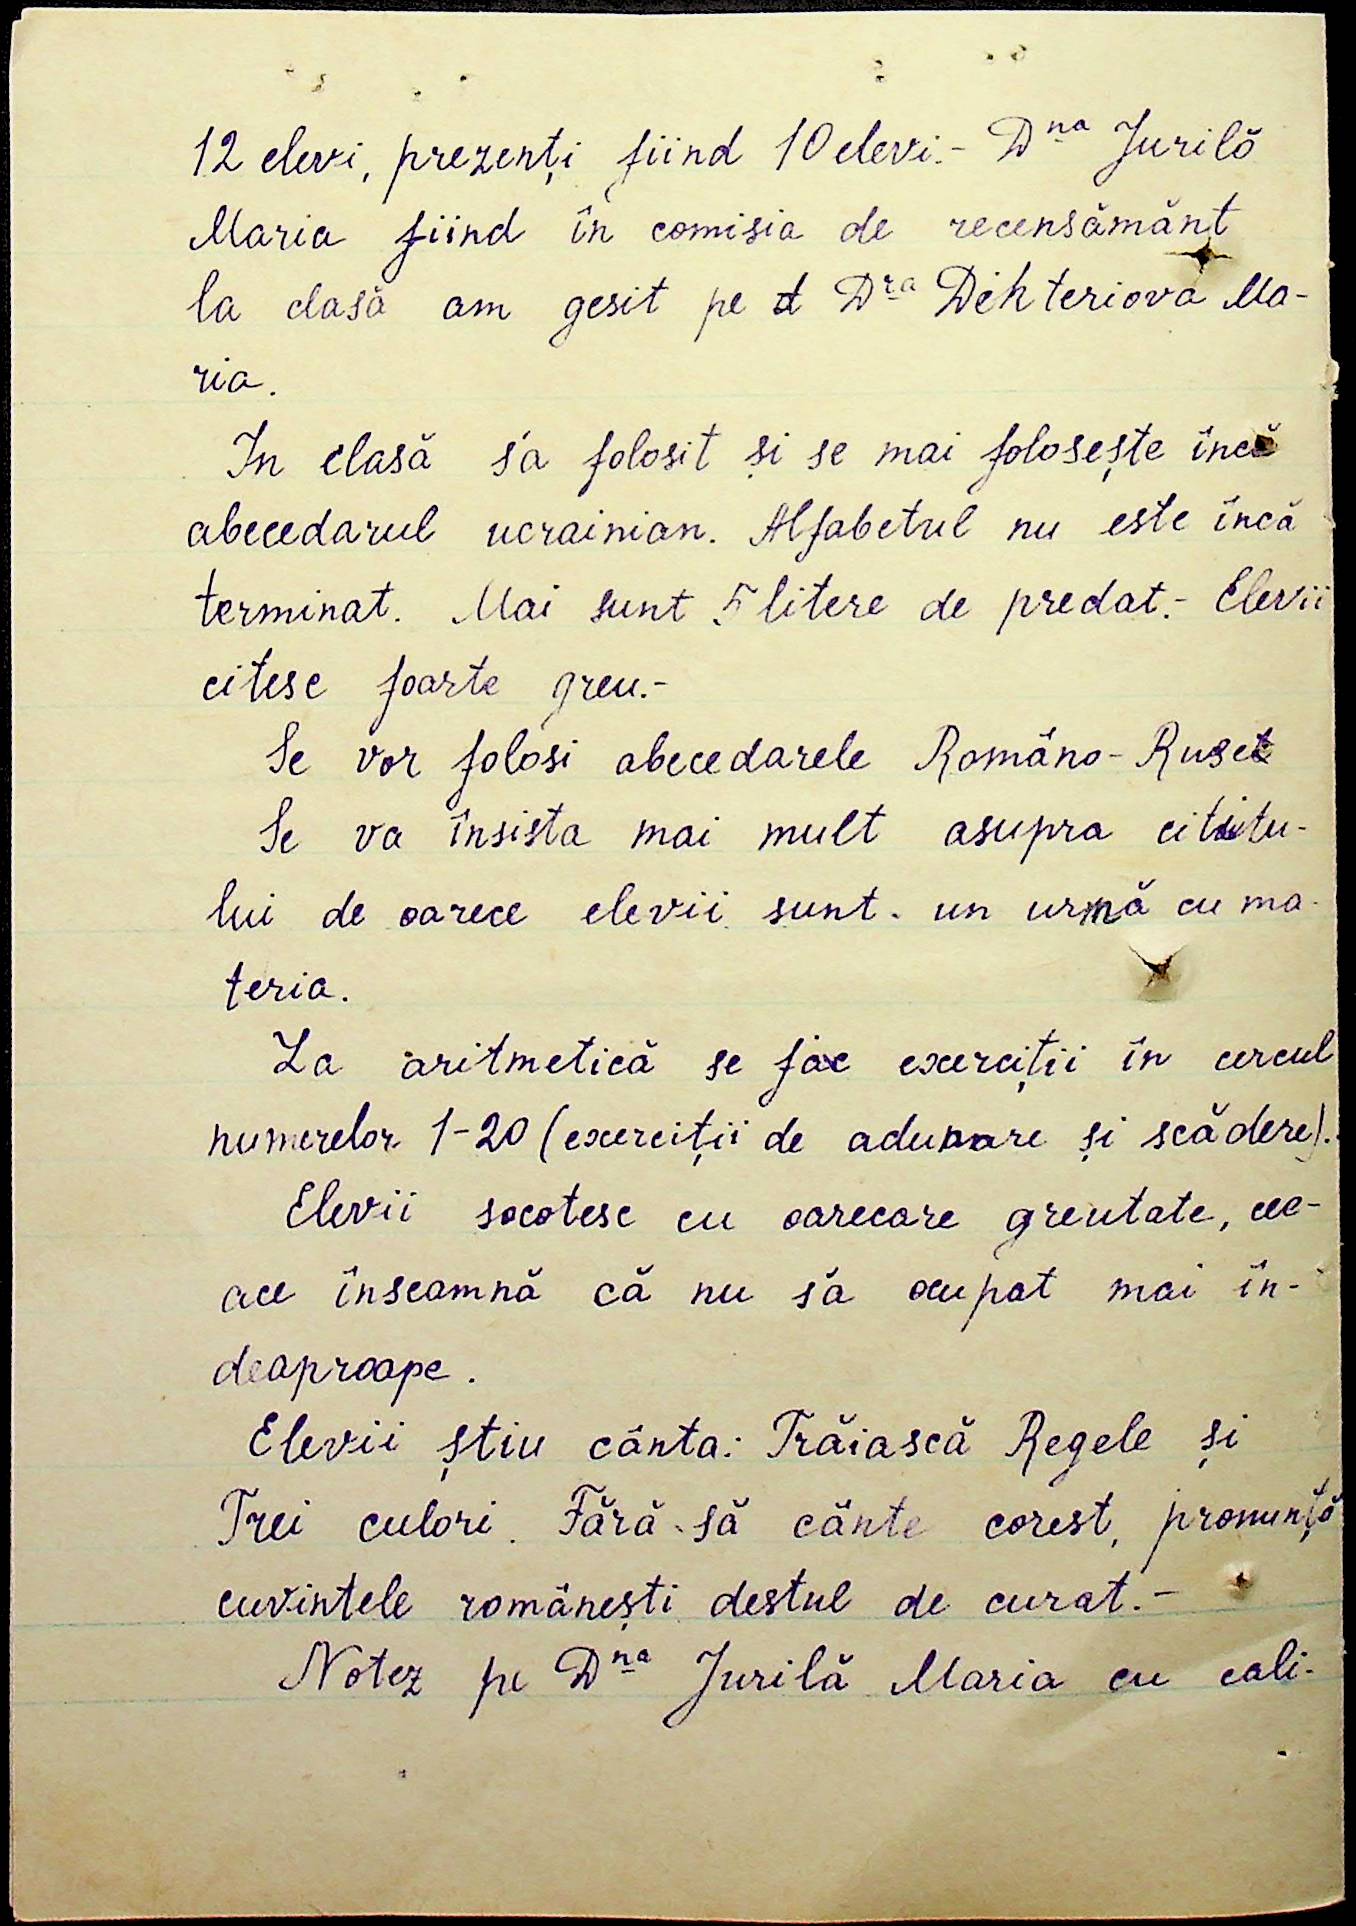 12 elevi, prezenți fiind 10 elevi.- Dna Jurilă
Maria fiind în comisia de recensămănt
la clasă am gesit pe d Dra Dehteriova Ma-
ria.
In clasă s'a folosit și se mai folosește încă
abecedarul ucrainian. Alfabetul nu este încă
terminat. Mai sunt 5 litere de predat.- Elevii
citesc foarte greu.-
Se vor folosi abecedarele Româno-Ruse
Se va însista mai mult asupra cititu-
lui de oarece elevii sunt un urmă cu ma-
teria.
La aritmetică se fac exerciții în cercul
numerelor 1-20 (exerciții de adunare și scădere).
Elevii socotesc cu oarecare greutate, cee-
ace însea​mnă că nu să ocupat mai în-
deaproape.
Elevii știu cânta: Trăiască Regele și
Trei culori. Fără să cânte corest, pronunță
cuvintele românești destul de curat.-
Notez pe Dna Jurilă Maria cu cali-